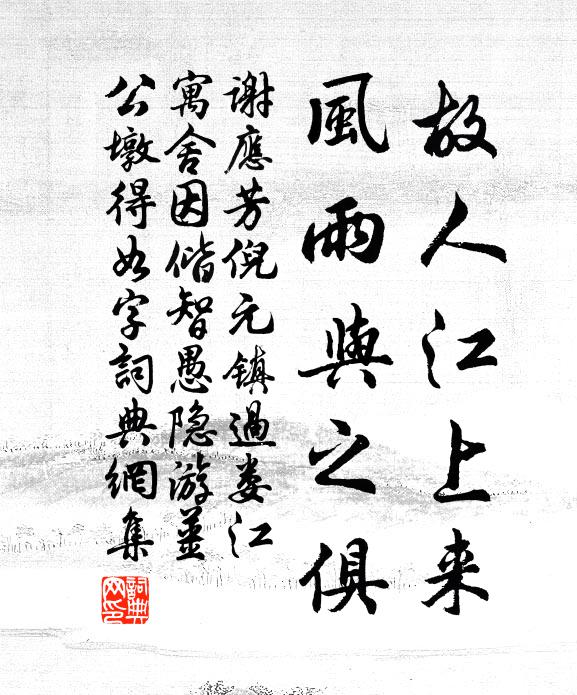 故人江上来
風雨與之俱
谢應芳倪元镇過娄江
寓舍因偕智愚隐游姜
公墩得如字詞典網集
詞典网印